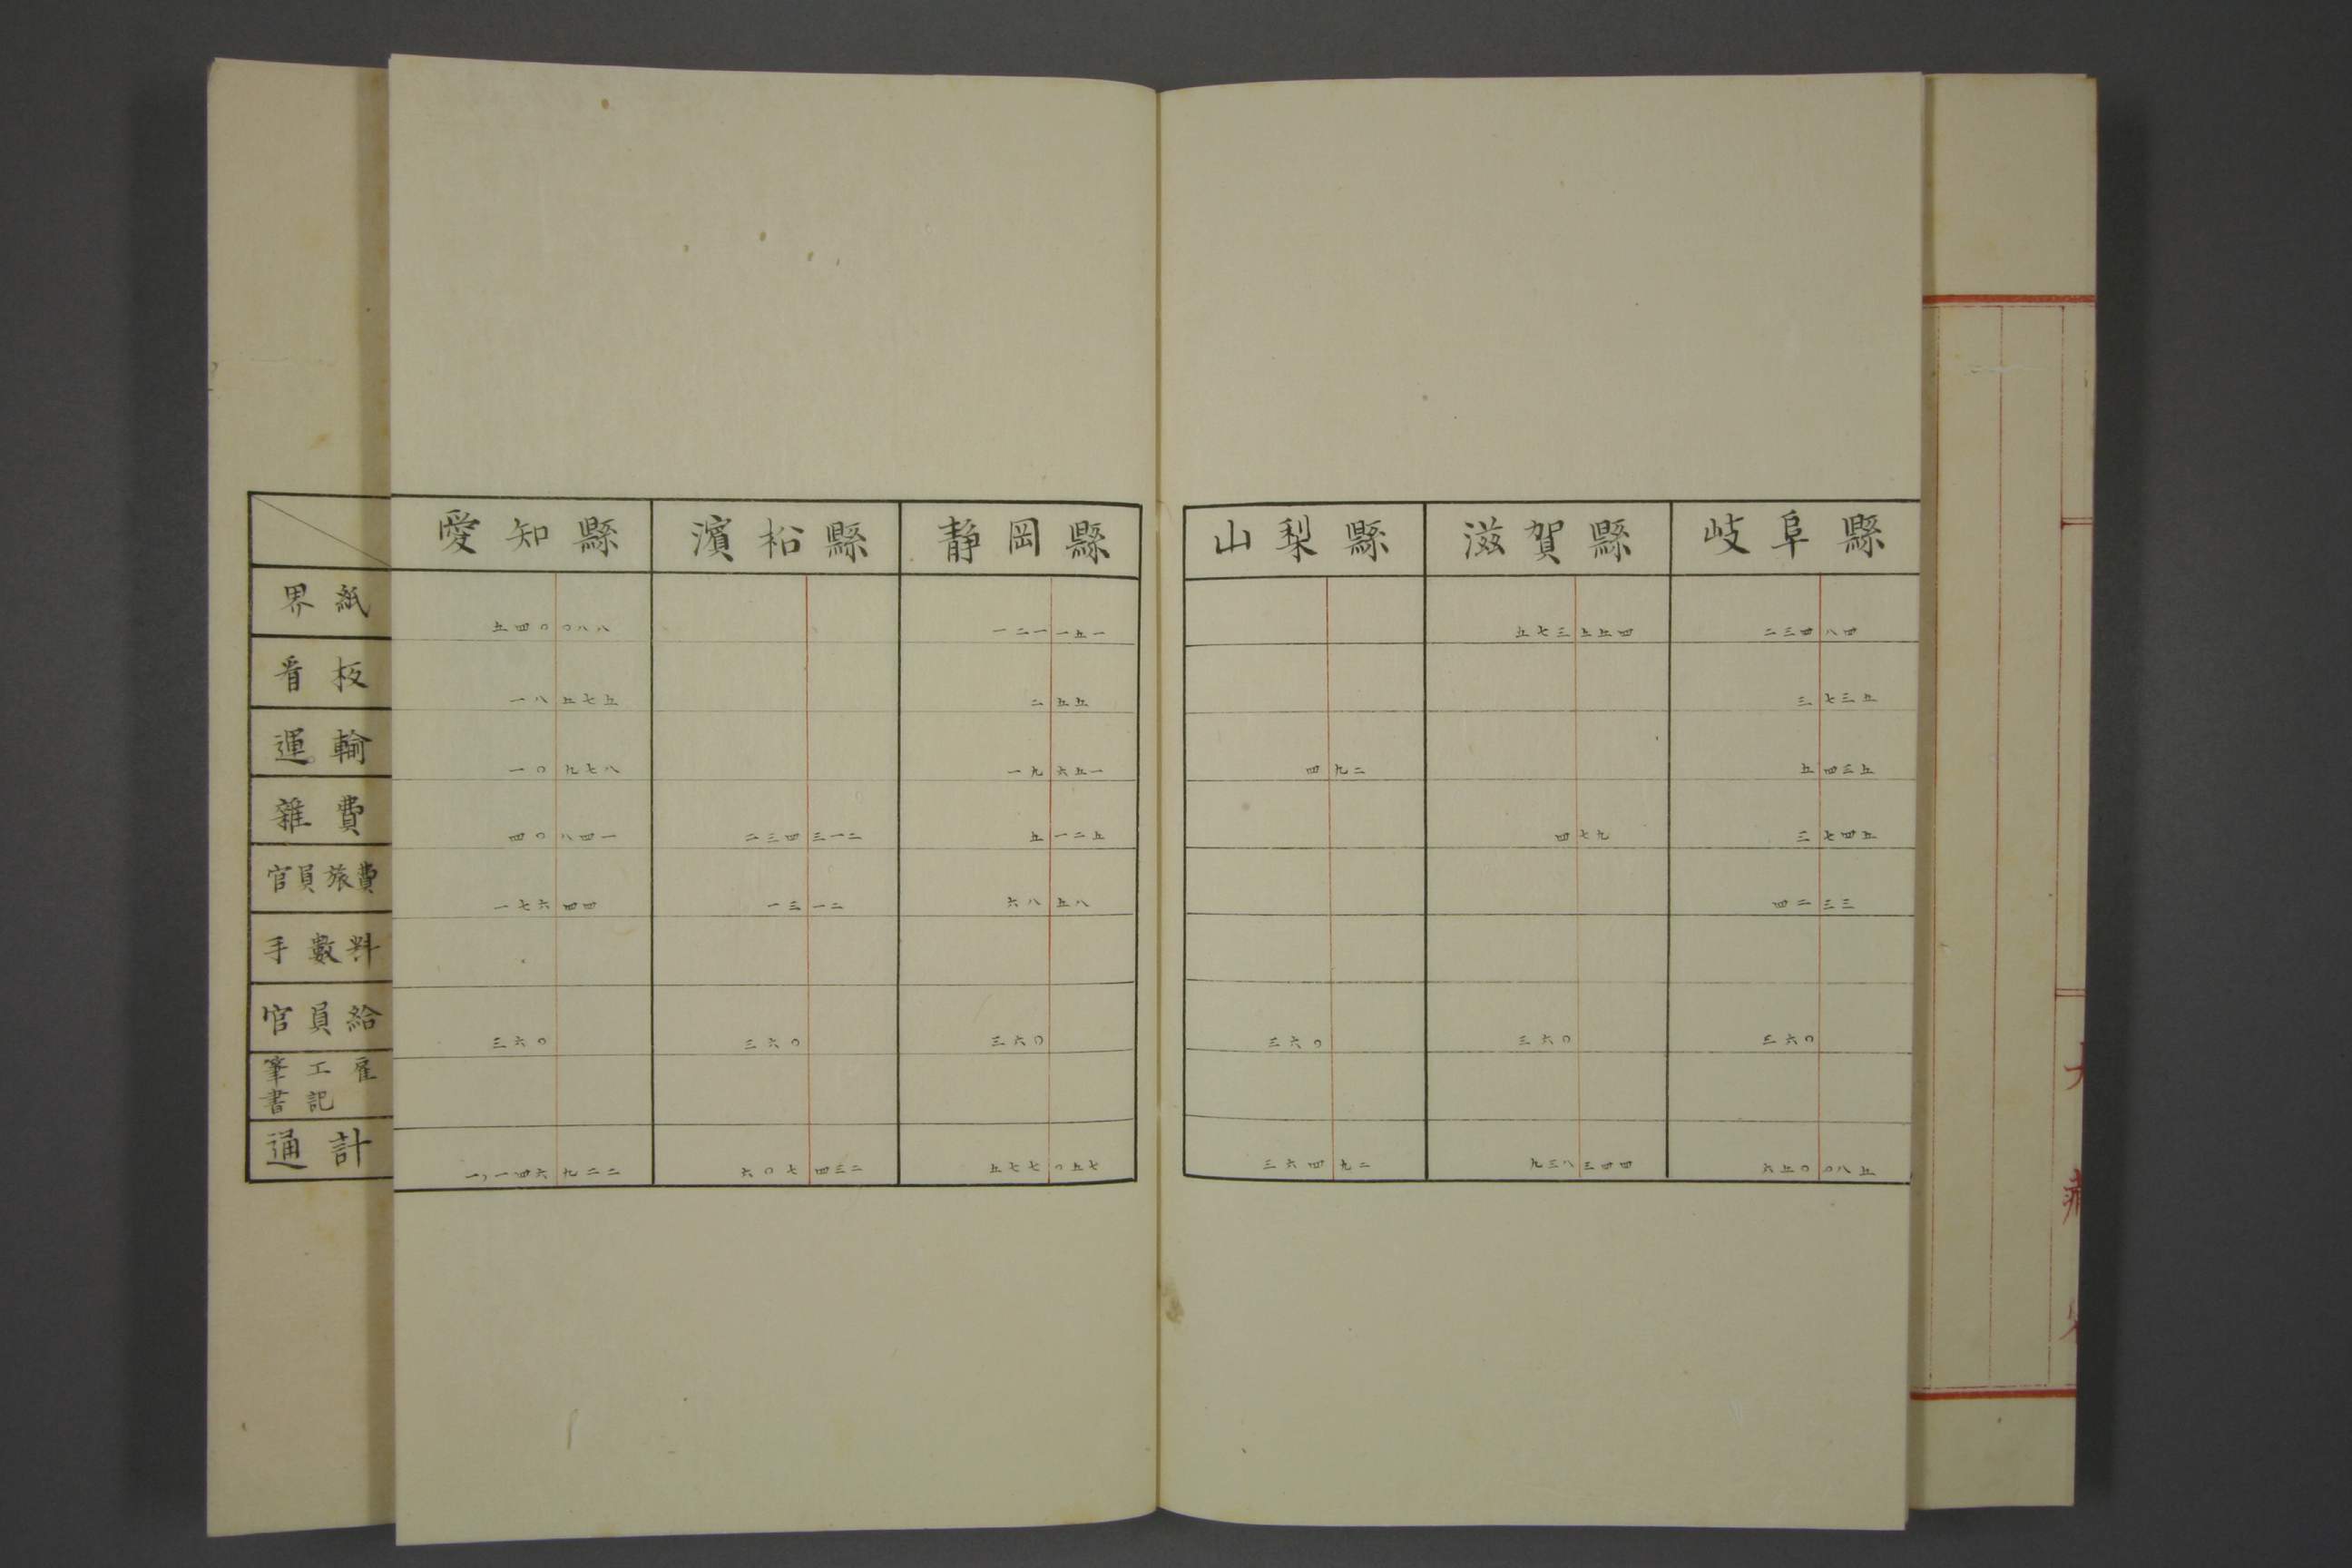 愛知縣 濱柗縣 静岡縣 山梨縣 滋賀縣 岐阜縣
界紙 五四〇 〇八八 一二一 一五一 五七三 五五四 二三四 八四
看板 一八 五七五 二 五五 三 七三五
運輸 一〇 九七八 一九 六五一 四 九二 五 四三五
雜費 四〇 八四一 二三四 三一二 五 一二五 四 七九 三 七四五
官員旅費 一七六 四四 一三 一二 六八 五八 四二 三三
手數料
官員給 三六〇 三六〇 三六〇 三六〇 三六〇 三六〇
筆工雇
書記
通計 一,一四六 九二二 六〇七 四三二 五七七 〇五七 三六四 九二 九三八 三四四 六五〇 〇八五